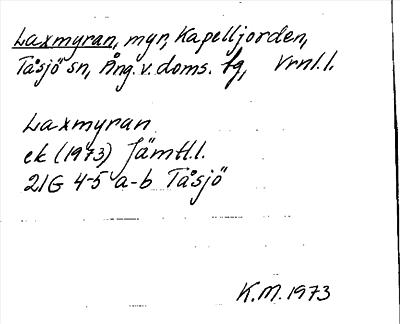 Laxmyran, myr, Kapelljorden,
Tåsjö sn, Ång. v. doms. tg, Vrnl.l.
Laxmyran
ek (1973) Jämtl.l.
21G 4-5 a-b Tåsjö
K.M. 1973